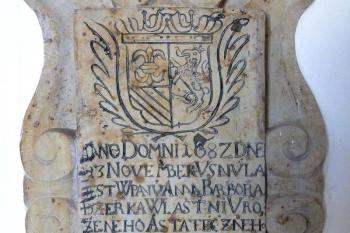 ANO DOMNI 1682 DNE
13 NOVEMBERV SNVLA
GEST W PANV ANNA BARBORA
DZERKA WLASTNI VRO
ZENEHO A STATECZNEH